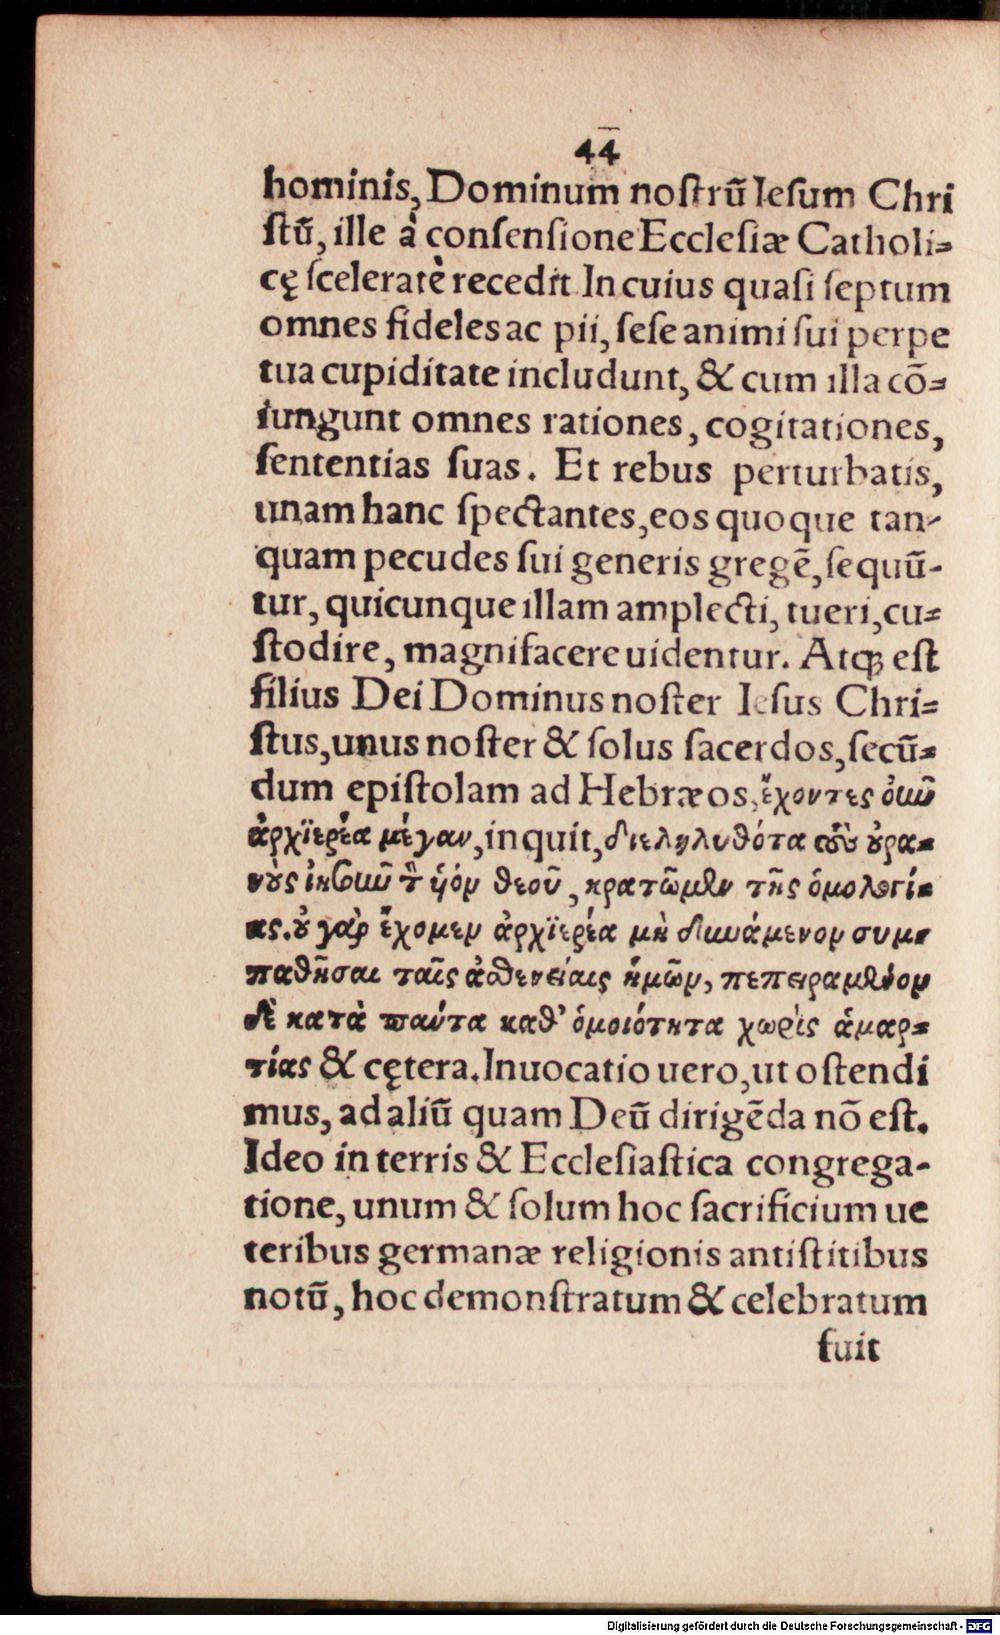 44
hominis, Dominum nostrũ Iesum Chri
stũ, ille à consensione Ecclesiæ Catholi=
cę sceleratè recedit In cuius quasi septum
omnes fideles ac pii, sese animi sui perpe
tua cupiditate includunt, & cum illa cõ=
iungunt omnes rationes, cogitationes,
sententias suas. Et rebus perturbatis,
unam hanc spectantes, eos quoque tan-
quam pecudes sui generis gregẽ, sequũ-
tur, quicunque illam amplecti, tueri, cu=
stodire, magnifacere uidentur. Atq; est
filius Dei Dominus noster Iesus Chri=
stus, unus noster & solus sacerdos, secũ=
dum epistolam ad Hebræos, ἔχοντες οὖν
ἀρχϊερέα μέγαν, inquit, διεληλυθότα τοὺς οὐρα=
νοὺς ἰησοῦν τὸν ὑὸν θεοῦ, κρατῶμεν τῆς ὁμολογί=
ας. οὐ γὰρ ἔχομεν ἀρχϊερέα μὴ δυνάμενον συμ=
παθῆσαι ταῖς ἀσθενείαις ἡμῶν, πεπειραμένον
δὲ κατὰ πάντα καθ' ὁμοιότητα χωρὶς ἁμαρ=
τίας & cętera. Inuocatio uero, ut ostendi
mus, ad aliũ quam Deũ dirigẽda nõ est.
Ideo in terris & Ecclesiastica congrega-
tione, unum & solum hoc sacrificium ue
teribus germanæ religionis antistitibus
notũ, hoc demonstratum & celebratum
fuit
Digitalisierung gefördert durch die Deutsche Forschungsgemeinschaft - DFG